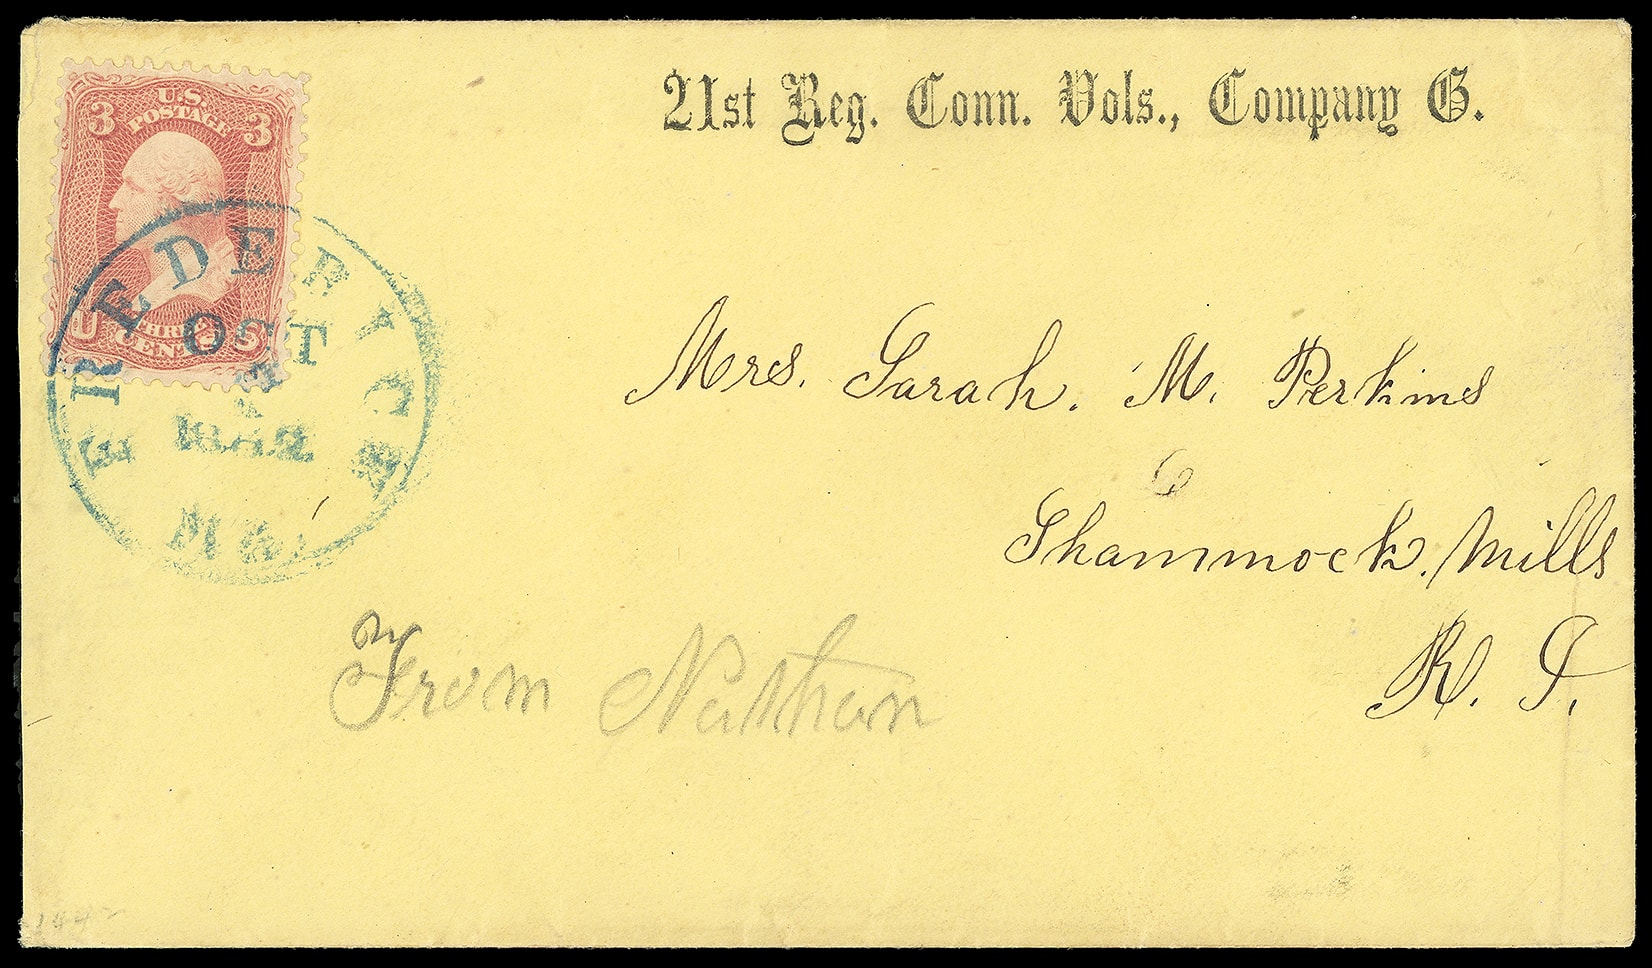 21st Reg. Conn. Vols., Company G.
3 U.S. POSTAGE 3
U THREE CENTS S
FREDERICK
OCT
1862
Md.
Mrs. Sarah. M. Perkins
Shammock. Mills
R. I.
From Nathan